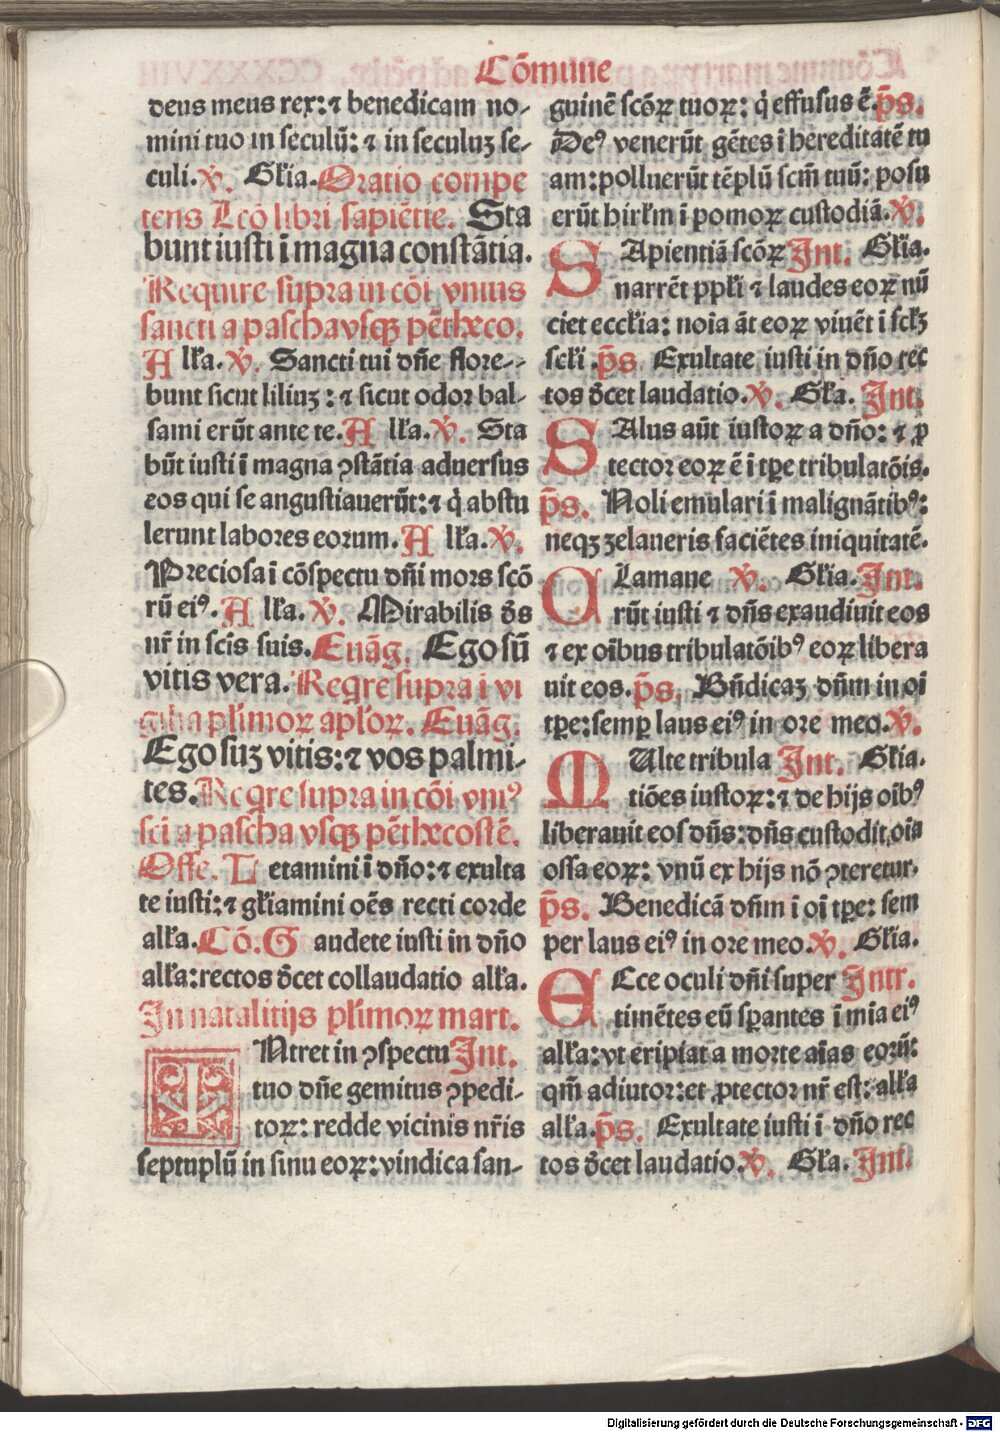 Cōmune
deus meus rex: ⁊ benedicam no-
mini tuo in seculū: ⁊ in seculuꝫ se-
culi. ꝟ. Gl̄ia. Oratio compe
tens Lcō libri sapiētie. Sta
bunt iusti ī magna constātia.
Require supra in cōi vnius
sancti a pascha vsqꝫ pēthēco.
Alľa. ꝟ. Sancti tui dn̄e flore-
bunt sicut liliuꝫ: ⁊ sicut odor bal-
sami erūt ante te. Alľa. ꝟ. Sta
būt iusti ī magna ꝯstātia aduersus
eos qui se angustiauerūt: ⁊ q̇ abstu
lerunt labores eorum. Alľa. ꝟ.
Preciosa ī cōspectu dn̄i mors scō
rū eiꝰ. Alľa. ꝟ. Mirabilis d̄s
nr̄ in scīs suis. Euāg. Ego sū
vitis vera. Reqre supra ī vi
gilia pľimoꝝ apľoꝝ. Euāg.
Ego suꝫ vitis: ⁊ vos palmi-
tes. Reqre supra in cōi vniꝰ
scī a pascha vsqꝫ pēthēcostē.
Offe. Letamini ī dn̄o: ⁊ exulta
te iusti: ⁊ gľiamini oēs recti corde
alľa. Cō. Gaudete iusti in dn̄o
alľa: rectos d̄cet collaudatio alľa.
In natalitijs pľimoꝝ mart.
INtret in ꝯspectu Int.
tuo dn̄e gemitus ꝯpedi-
toꝝ: redde vicinis nr̄is
septuplū in sinu eoꝝ: vindica san-
guinē scōꝝ tuoꝝ: q̇ effusus ē. p̄s.
Deꝰ venerūt gētes ī hereditatē tu
am: polluerūt tēplū scm̄ tuū: posu
erūt hirľm ī pomoꝝ custodiā. ꝟ.
SApientiā scōꝝ Int. Gľia.
narrēt ppľi ⁊ laudes eoꝝ nū
ciet eccľia: noīa āt eoꝝ viuēt ī scľꝫ
scľi p̄s Exultate iusti in dn̄o rec
tos d̄cet laudatio. ꝟ. Gľa. Int.
SAlus aūt iustoꝝ a dn̄o: ⁊ ꝓ
tector eoꝝ ē ī tp̄e tribulatōis.
p̄s. Noli emulari ī malignātibꝰ:
neqꝫ zelaueris faciētes iniquitatē.
CLamaue ꝟ. Gľia. Int.
rūt iusti ⁊ dn̄s exaudiuit eos
⁊ ex oībus tribulatōibꝰ eoꝝ libera
uit eos. p̄s. Bn̄dicaꝫ dn̄m in oī
tp̄e: semp laus eiꝰ in ore meo. ꝟ.
MUlte tribula Int. Gľia.
tiōes iustoꝝ: ⁊ de hijs oībꝰ
liberauit eos dn̄s: dn̄s custodit oīa
ossa eoꝝ: vnū ex hijs nō ꝯteretur.
p̄s. Benedicā dn̄m ī oī tp̄e: sem
per laus eiꝰ in ore meo. ꝟ. Gľia.
ECce oculi dn̄i super Intr.
timētes eū sꝑantes ī mīa eiꝰ
alľa: vt eripiat a morte aīas eorū:
qm̄ adiutor: et ꝓtector nr̄ est: alľa
alľa. p̄s. Exultate iusti ī dn̄o rec
tos d̄cet laudatio. ꝟ. Gľa. Int.
Digitalisierung gefördert durch die Deutsche Forschungsgemeinschaft - DFG